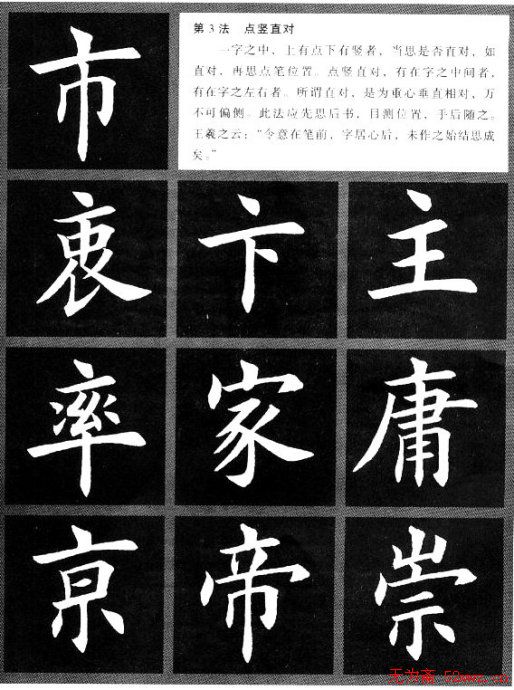 第3法　点竖直对
一字之中，上有点下有竖者，当思是否直对，如
直对，再思点笔位置。点竖直对，有在字之中间者，
有在字之左右者。所谓直对，是为重心垂直相对，万
不可偏侧。此法应先思后书，目测位置，手后随之。
王羲之云：“令意在笔前，字居心后，未作之始结思成
矣。”
市
衷 卞 主
率 家 庸
亰 帝 崇
无为斋